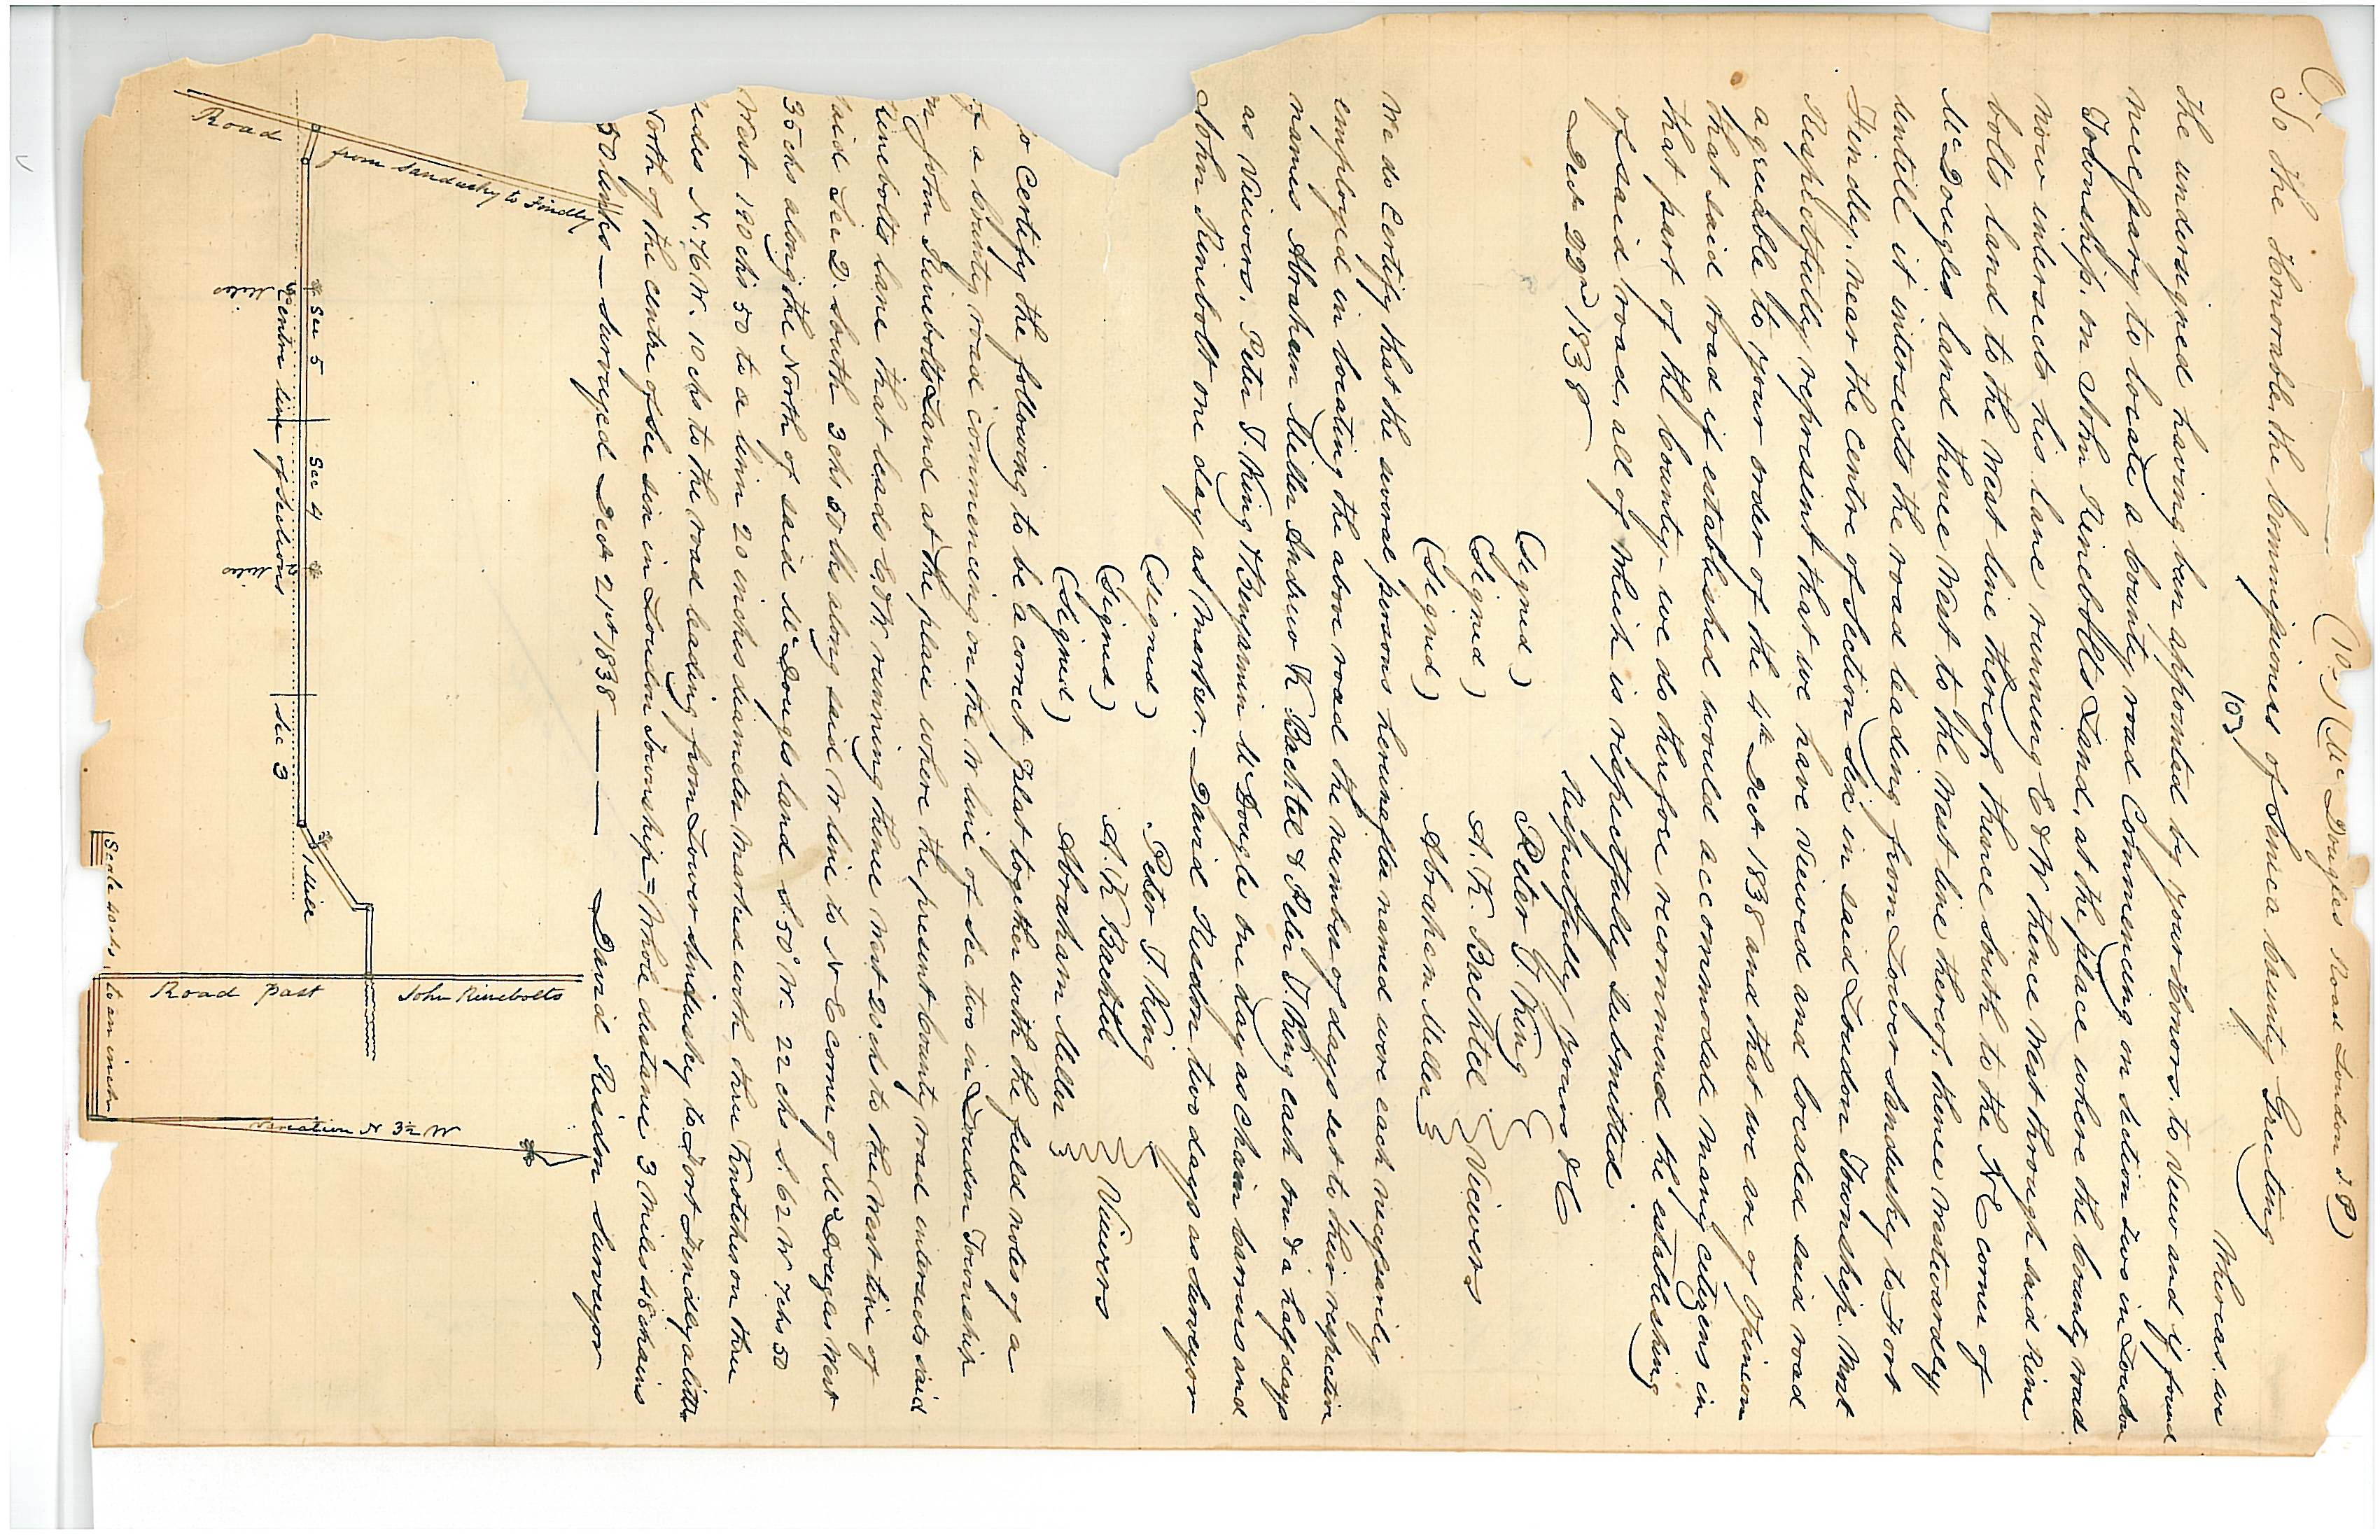 (10) (Mc Dougles Road Loudon T.P)
To the Honorable the Commissioners of Seneca County Greeting
103
Whereas we
the undersigned having been appointed by your Honors to view and if found
necessary to locate a County road Commencing on Section two in Loudon
Township, on John Rinebolts Land, at the place where the County road
now intersects his lane running E & W thence West through said Rine
bolts land to the West line thereof, thence South to the N E corner of
Mc Dougles land thence West to the West line thereof, thence Westwardly
untill it intersects the road leading from Lower Sandusky to Fort
Findly, near the centre of Section Six in said Loudon Township. Most
Respectfully represent that we have viewed and located said road
agreeable to your order of the 4th Dect 1838 and that we are of Opinion
that said road if established would accommodate many citizens in
that part of the County - we do therefore recommend the establishing
of said road, all of which is respectfully submitted
Dect 22nd 1838
Respectfully yours &C
(Signed) Peter T. King
(Signed) A. K. Bachtel Viewers
(Signed) Abraham Miller
We do Certify that the several persons hereinafter named were each necessarily
employed in locating the above road the number of days set to their respective
names Abraham Miller Andrew K Bachtel & Peter T King each one & a half days
as Viewers. Peter T. King & Benjamin Mc Dougle one day as Chain carriers and
John Rinebolt one day as Marker. David Risdon two days as Surveyor
(Signed) Peter T King
(Signed) A. K Bachtel Viewers
(Signed) Abraham Miller
do Certify the following to be a correct plat together with the field notes of a
of a County road commencing on the W line of Sec two in Loudon Township
on John Rinebolts Land at the place where the present County road intersects said
Rinebolts lane that leads E & W running thence West 20 chs to the West line of
said Sec 2. South 3 chs 50 lks along said W line to N E corner of Mc Dougles West
35 chs along the North of said Mc Dougls land S. 50° W. 22 chs S. 62 W 7 chs 50
West 190 chs 50 to a Linn 20 inches diameter Marked with three Knotches on three
sides N. 76 W. 10 chs to the road leading from Lower Sandusky to Fort Findly a little
North of the centre of Sec six in Loudon Township = Whole distance 3 Miles 48 chains
50 links — Surveyed Dect 21st 1838 — David Risdon Surveyor
Road from Sandusky to Findly
Miles
Sec 5
Centre line of Sections
Sec 4
Miles
Sec 3
1 Mile
Road past John Rinebolts
Variation N 3½ W
Scale 40 chs, to an inch